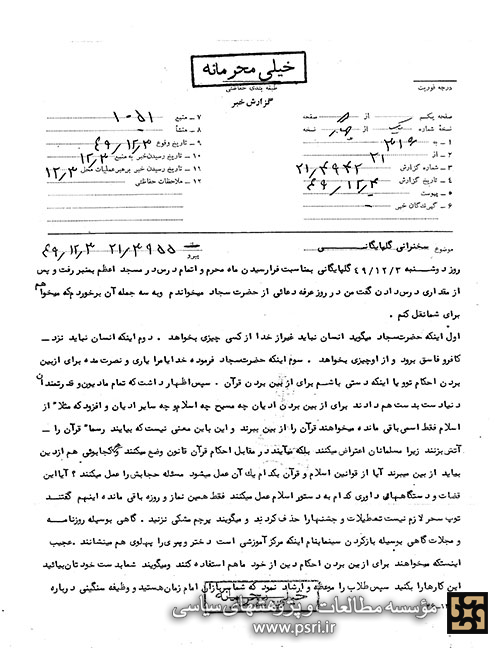 خیلی محرمانه
طبقه بندی حفاظتی
درجه فوریت
گزارش خبر
صفحه یکم از صفحه
نسخهٔ شماره یک از نسخه
۱ – به ۳۱۶
۲ – از ۲۱
۳ – شماره گزارش ۲۱/۴۹۴۲
۴ – تاریخ گزارش ۴۹/۱۲/۴
۵ – پیوست
۶ – گیرندگان خبر
۷ – منبع ۱۰۵۱
۸ – منشأ
۹ – تاریخ وقوع ۴۹/۱۲/۳
۱۰ – تاریخ رسیدن خبر به منبع ۱۲/۳
۱۱ – تاریخ رسیدن خبر برهبر عملیات محل ۱۲/۳
۱۲ – ملاحظات حفاظتی
موضوع سخنرانی گلپایگانی
پیرو ۲۱/۴۹۵۵ ۴۹/۱۲/۳
روز دوشنبه ۴۹/۱۲/۳ گلپایگانی بمناسبت فرارسیدن ماه محرم و اتمام درس در مسجد اعظم بمنبر رفت و پس
از مقداری درس دادن گفت من در روز عرفه دعائی از حضرت سجاد میخواندم و به سه جمله آن برخوردم که میخواهم
برای شما نقل کنم .
اول اینکه حضرت سجاد میگوید انسان نباید غیر از خدا از کسی چیزی بخواهد . دوم اینکه انسان نباید نزد
کافر و فاسق برود و از او چیزی بخواهد . سوم اینکه حضرت سجاد فرموده خدایا مرا یاری و نصرت مده برای ازبین
بردن احکام تو و یا اینکه دستی باشم برای از بین بردن قرآن . سپس اظهار داشت که تمام مادیون و قدرتمندان
دنیا دست بدست هم دادند برای از بین بردن ادیان چه مسیح چه اسلام و چه سایر ادیان و افزود که مثلا" از
اسلام فقط اسمی باقی مانده میخواهند قرآن را از بین ببرند و این باین معنی نیست که بیایند رسما" قرآن را
آتش بزنند زیرا مسلمانان اعتراض میکنند بلکه میآیند در مقابل احکام قرآن قانون وضع میکنند و کجا بوئی هم از دین
بیاید از بین میبرند آیا از قوانین اسلام و قرآن بکدام یک آن عمل میشود مسئله حجابش را عمل میکنند ؟ آیا این
قضات و دستگاههای داوری کدام به دستور اسلام عمل میکنند فقط همین نماز و روزه باقی مانده اینهم گفتند
توپ سحر لازم نیست تعطیلات و جشنها را حذف کردند و میگویند پرچم مشکی نزنید . گاهی بوسیله روزنامه
و مجلات گاهی بوسیله باز کردن سینما بنام اینکه مرکز آموزشی است دختر و پسری را پهلوی هم مینشانند . عجیب
اینستکه میخواهند برای از بین بردن احکام دین از خود ما هم استفاده کنند و میگویند شما بدست خودتان بیائید
این کارها را بکنید سپس طلاب را موعظه و ارشاد نمود که شما سربازان امام زمان هستید و وظیفه سنگینی درباره
خیلی محرمانه
مؤسسه مطالعات و پژوهشهای سیاسی
www.psri.ir